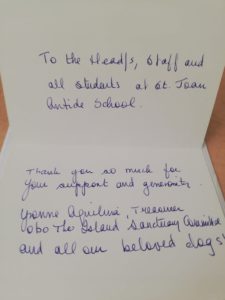 To the Head/s, Staff and
all students at St. Joan
Antide School.
Thank you so much for
your support and generosity.
Yvonne Aquilina, Treasurer
obo The Island Sanctuary
and all our beloved dogs!